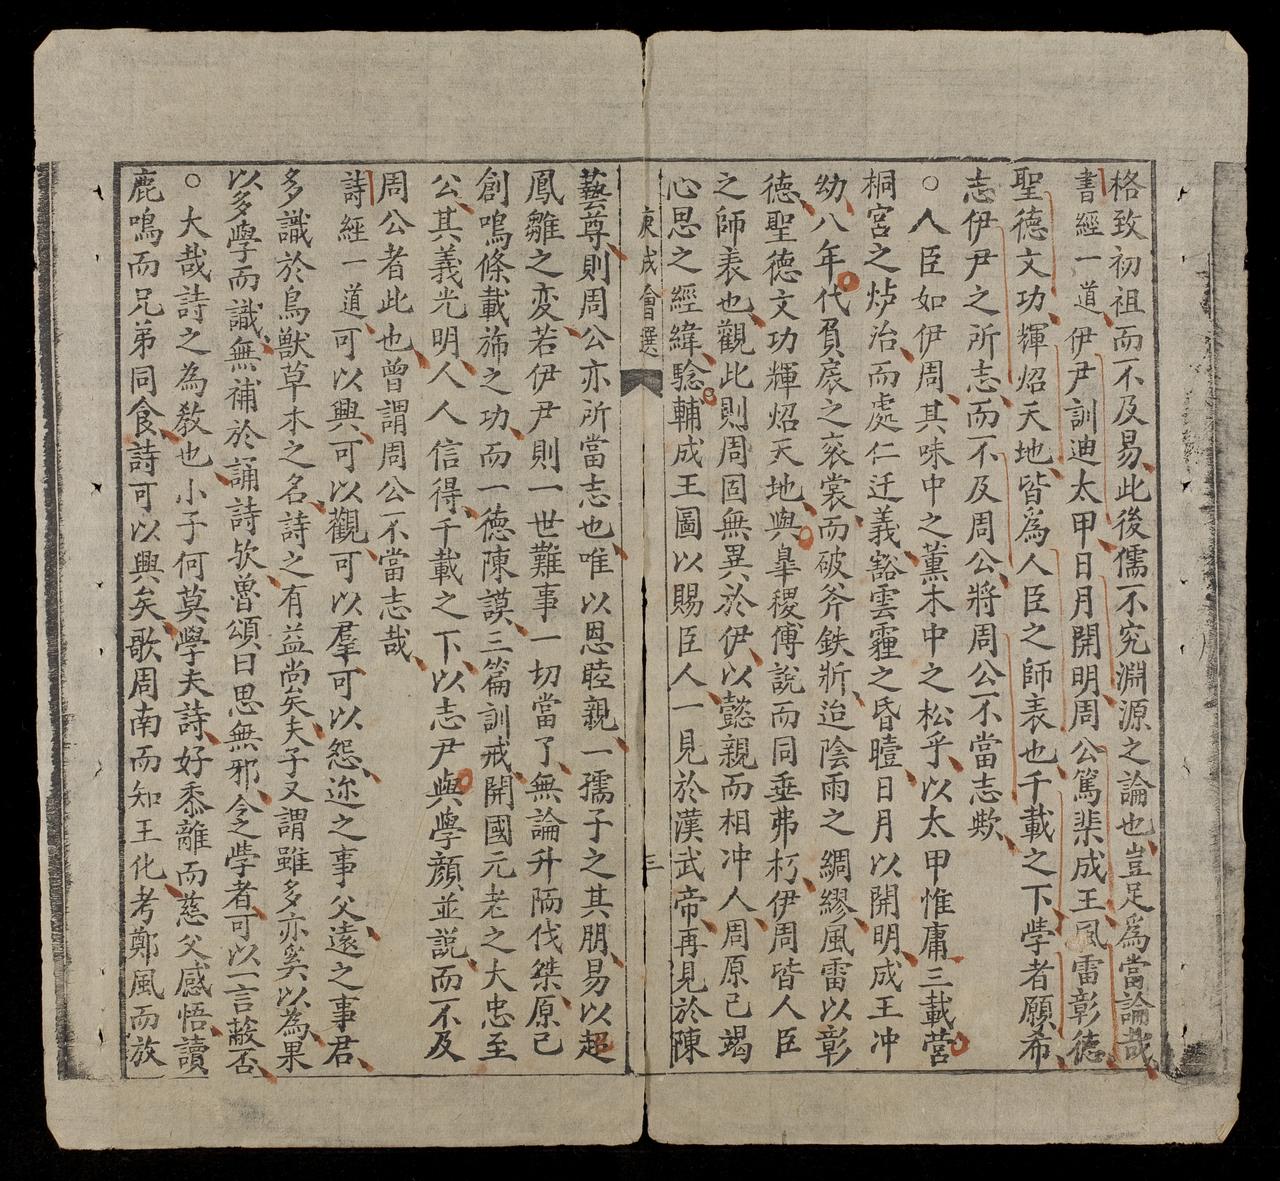 格致初祖而不及易此後儒不究淵源之論也豈足為當論哉
書經一道伊尹訓迪太甲日月開明周公篤棐成王風雷彰德
聖德文功輝炤天地皆為人臣之師表也千載之下學者願希
志伊尹之所志而不及周公將周公不當志歟
○人臣如伊周其味中之薰木中之松乎以太甲惟庸三載營
桐宮之炉治而處仁迁義豁雲霾之昏曀日月以開明成王冲
幼八年代負扆之衮裳而破斧鈇斨迨陰雨之綢繆風雷以彰
德聖德文功輝炤天地與皋稷傅說而同垂弗朽伊周皆人臣
之師表也觀此則周固無異於伊以懿親而相冲人周原已竭
心思之經緯騐輔成王圖以賜臣人一見於漢武帝再見於陳
庚戌會選
三
藝尊則周公亦所當志也唯以恩睦親一孺子之其朋易以起
鳳雛之变若伊尹則一世難事一切當了無論升陑伐桀原已
創鳴條載旆之功而一德陳謨三篇訓戒開國元老之大忠至
公其義光明人人信得千載之下以志尹與學顏並說而不及
周公者此也曾謂周公不當志哉
詩經一道可以興可以觀可以羣可以怨迩之事父遠之事君
多識於鳥獸草木之名詩之有益尚矣夫子又謂雖多亦奚以為果
以多學而識無補於誦詩欤魯頌曰思無邪今之學者可以一言蔽否
○大哉詩之為教也小子何莫學夫詩好黍離而慈父感悟讀
鹿鳴而兄弟同食詩可以興矣歌周南而知王化考鄭風而放